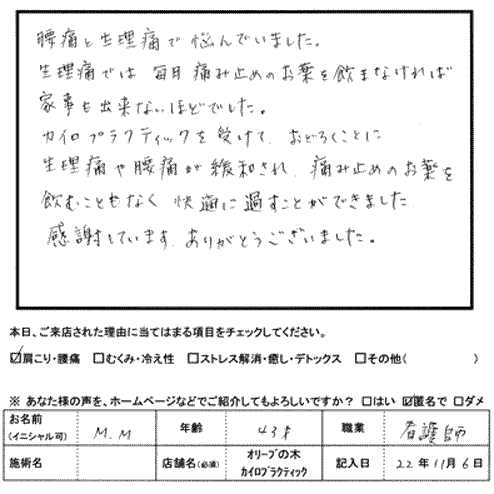 腰痛と生理痛で悩んでいました。
生理痛では毎月痛み止めのお薬を飲まなければ
家事も出来ないほどでした。
カイロプラクティックを受けて、おどろくことに
生理痛や腰痛が緩和され、痛み止めのお薬を
飲むこともなく快適に過すことができました。
感謝しています。ありがとうございました。
本日、ご来店された理由に当てはまる項目をチェックしてください。
☑肩こり・腰痛 □むくみ・冷え性 □ストレス解消・癒し・デトックス □その他( )
※ あなた様の声を、ホームページなどでご紹介してもよろしいですか? □はい ☑匿名で □ダメ
お名前(イニシャル可) M.M 年齢 43才 職業 看護師
施術名 店舗名(必須) オリーブの木 カイロプラクティック 記入日 22年11月6日